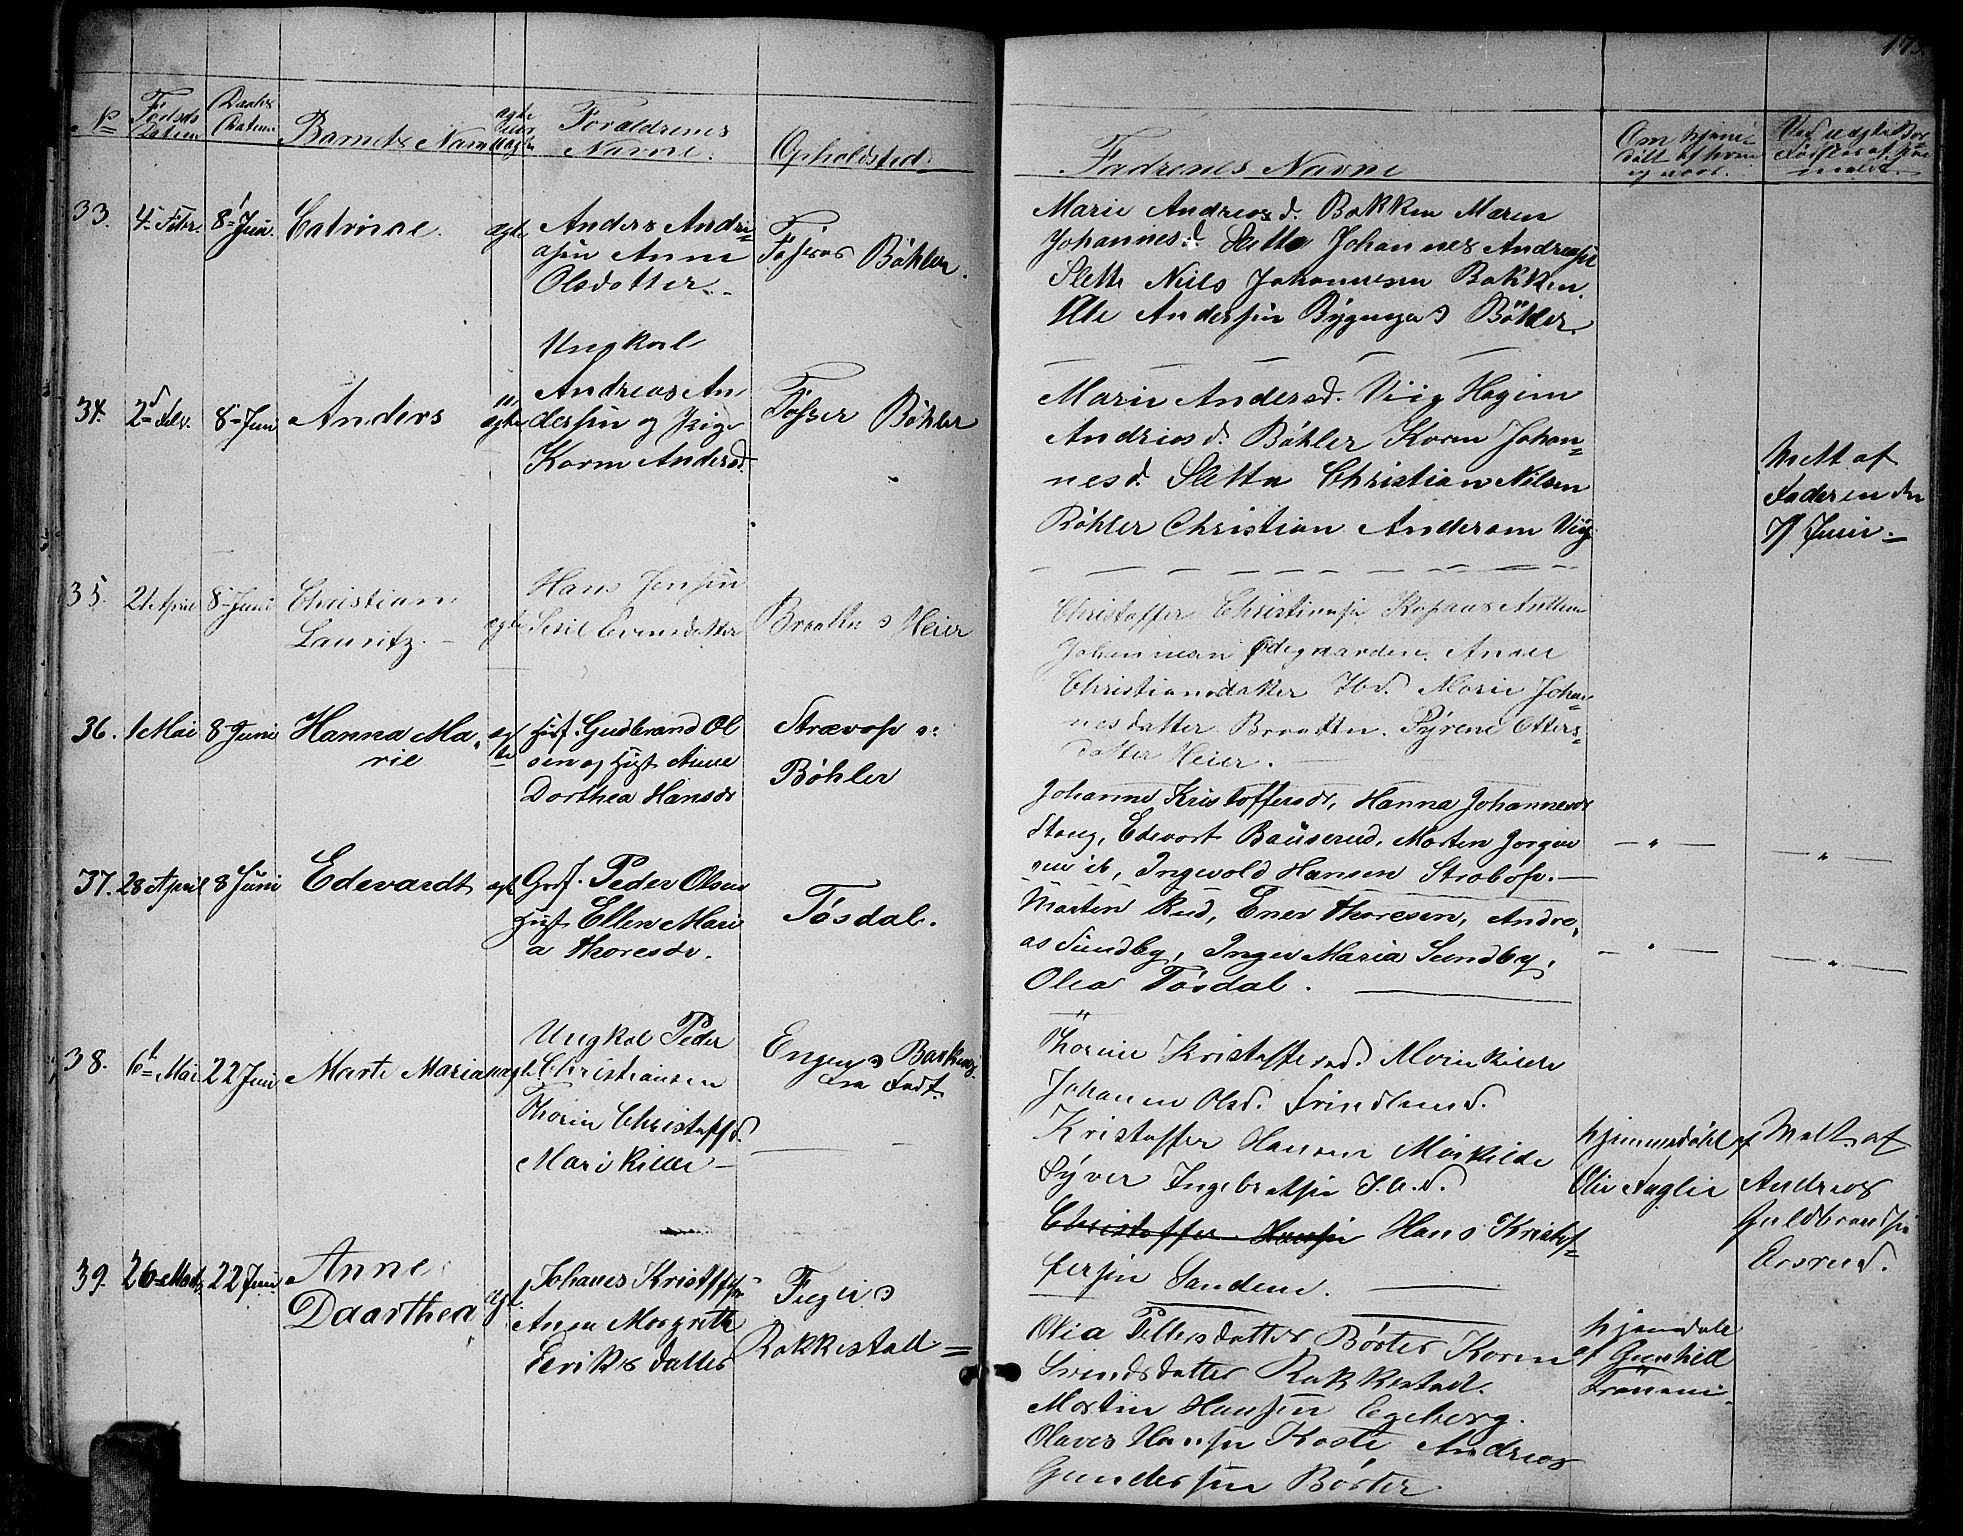 173.
No Fødsels Datum Daabs Datum Barnets Navn ægte eller uægte Forældrenes Navne. Opholdsted
Fadrenes Navne Om hjemme døbt af hvem og naar. Ved uægte
33. 4 Febr. 8 Juni Catrine. ægte Anders Andre=
asen Anne
Olsdotter.
Fosser Bøhler.
Marie Andreasd. Bakken Maren
Johannesd. Slette Johannes Andreasen
Slette Niels Johannesen Bakken.
Ole Andersen Bøhler.
34. 2 Febr. 8 Juni Anders uægte Ungkarl
Andreas An
dersen og Pige
Karen Andersd.
Fosser Bøhler
Marie Andersd. Viig
Andreasd. Bøhler Karen Johan=
nesd. Sletta Christian Nilsen
Bøhler Christian Andersen Viig
Meldt af
Faderen den
7 Juni.
35. 21 April 8 Juni Christian
Lauritz. ægte Hans Jensen
Sidsel Evensdatter
Braaten Heier
Christoffer Christiansen Anthon
Johannesen Ødegaarden. Anne
Christiansdatter Ibd. Marie Johan
nesdatter Braadten. Syrene Otters=
datter Heier.
36. 1 Mai 8 Juni Hanna Ma=
rie ægte Husf. Gudbrand Ol
sen og Hust Anne
Dorthea Hansdr
Bøhler
Johanne Kristoffersdr, Hanna Johannesdr
Stang, Edevart Bauserud, Morten Jørgen
sen ib, Ingvold Hansen
37. 28 April 8 Juni Edevardt ægte Grdf. Peder Olsen
Hust Ellen Mari
a Thoresdr.
Tøsdal.
Morten Rud, Ener Thoresen, Andre=
as Sundby, Inger Maria Sundby,
Olea Tøsdal.
38. 6 Mai 22 Juni Marte Maria uægte Ungkal Peder
Christiansen
Thorine Christoffd.
Marikille
Engen
Thorine Kristoffersd. Morikille
Johanne Olsd. Frindland.
Kristoffer Hansen Morikilde
Syver Ingebretsen Ibd.
Christoffer Hansen Hans Kristof=
fersen Sanden.
hjemmedøbt af
Olia Fuglie
Meldt af
Andreas
Guldbrandsen
Orsrud.
39. 26 Marts 22 Juni Anne
Daarthea ægt. Johanes Kristoffsen
Anne Margrethe
Eeriksdatter
Rakkestad
Olia Pettersdatter Børter Karen
Svendsdatter Rakkestad.
Martin Hansen Egeberg.
Olaves Hansen Andreas
Gundersen Børter
hjemdøbt
af Gunhild